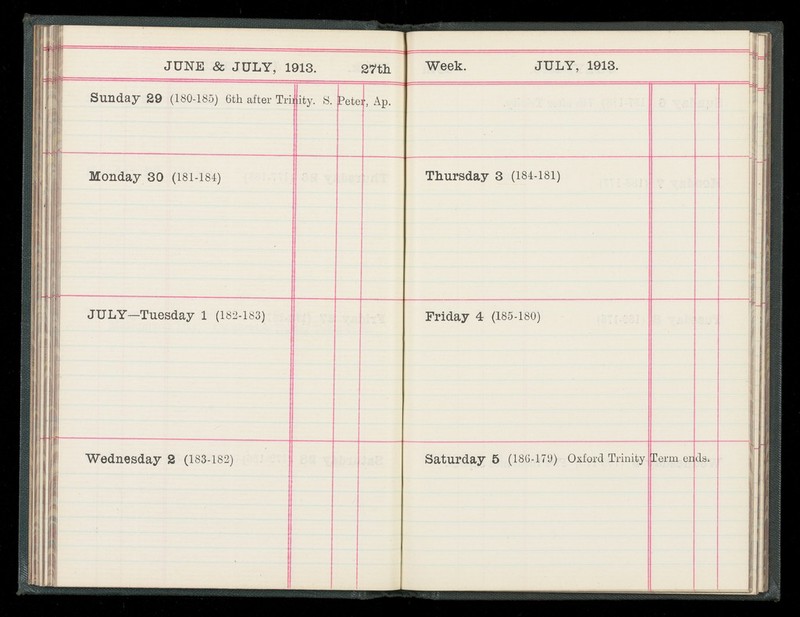 JUNE & JULY, 1913. 27th
Sunday 29 (180-185) 6th after Trinity. S. Peter, Ap.
Monday 30 (181-184)
JULY—Tuesday 1 (182-183)
Wednesday 2 (183-182)
Week. JULY, 1913.
Thursday 3 (184-181)
Friday 4 (185-180)
Saturday 5 (186-179) Oxford Trinity Term ends.